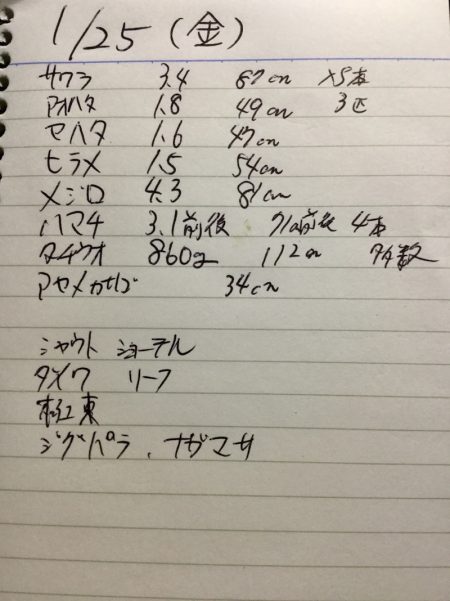 1/25（金）
サワラ 3.4 87cm ×5本
アオハタ 1.8 49cm 3匹
セハタ 1.6 47cm
ヒラメ 1.5 54cm
メジロ 4.3 81cm
ハマチ 3.1前後 71cm前後 4本
タチウオ 860g 112cm 多数
アヤメカサゴ 34cm
シャウト ショーテル
タメワ リーフ
極東
ジグパラ、ナガマサ